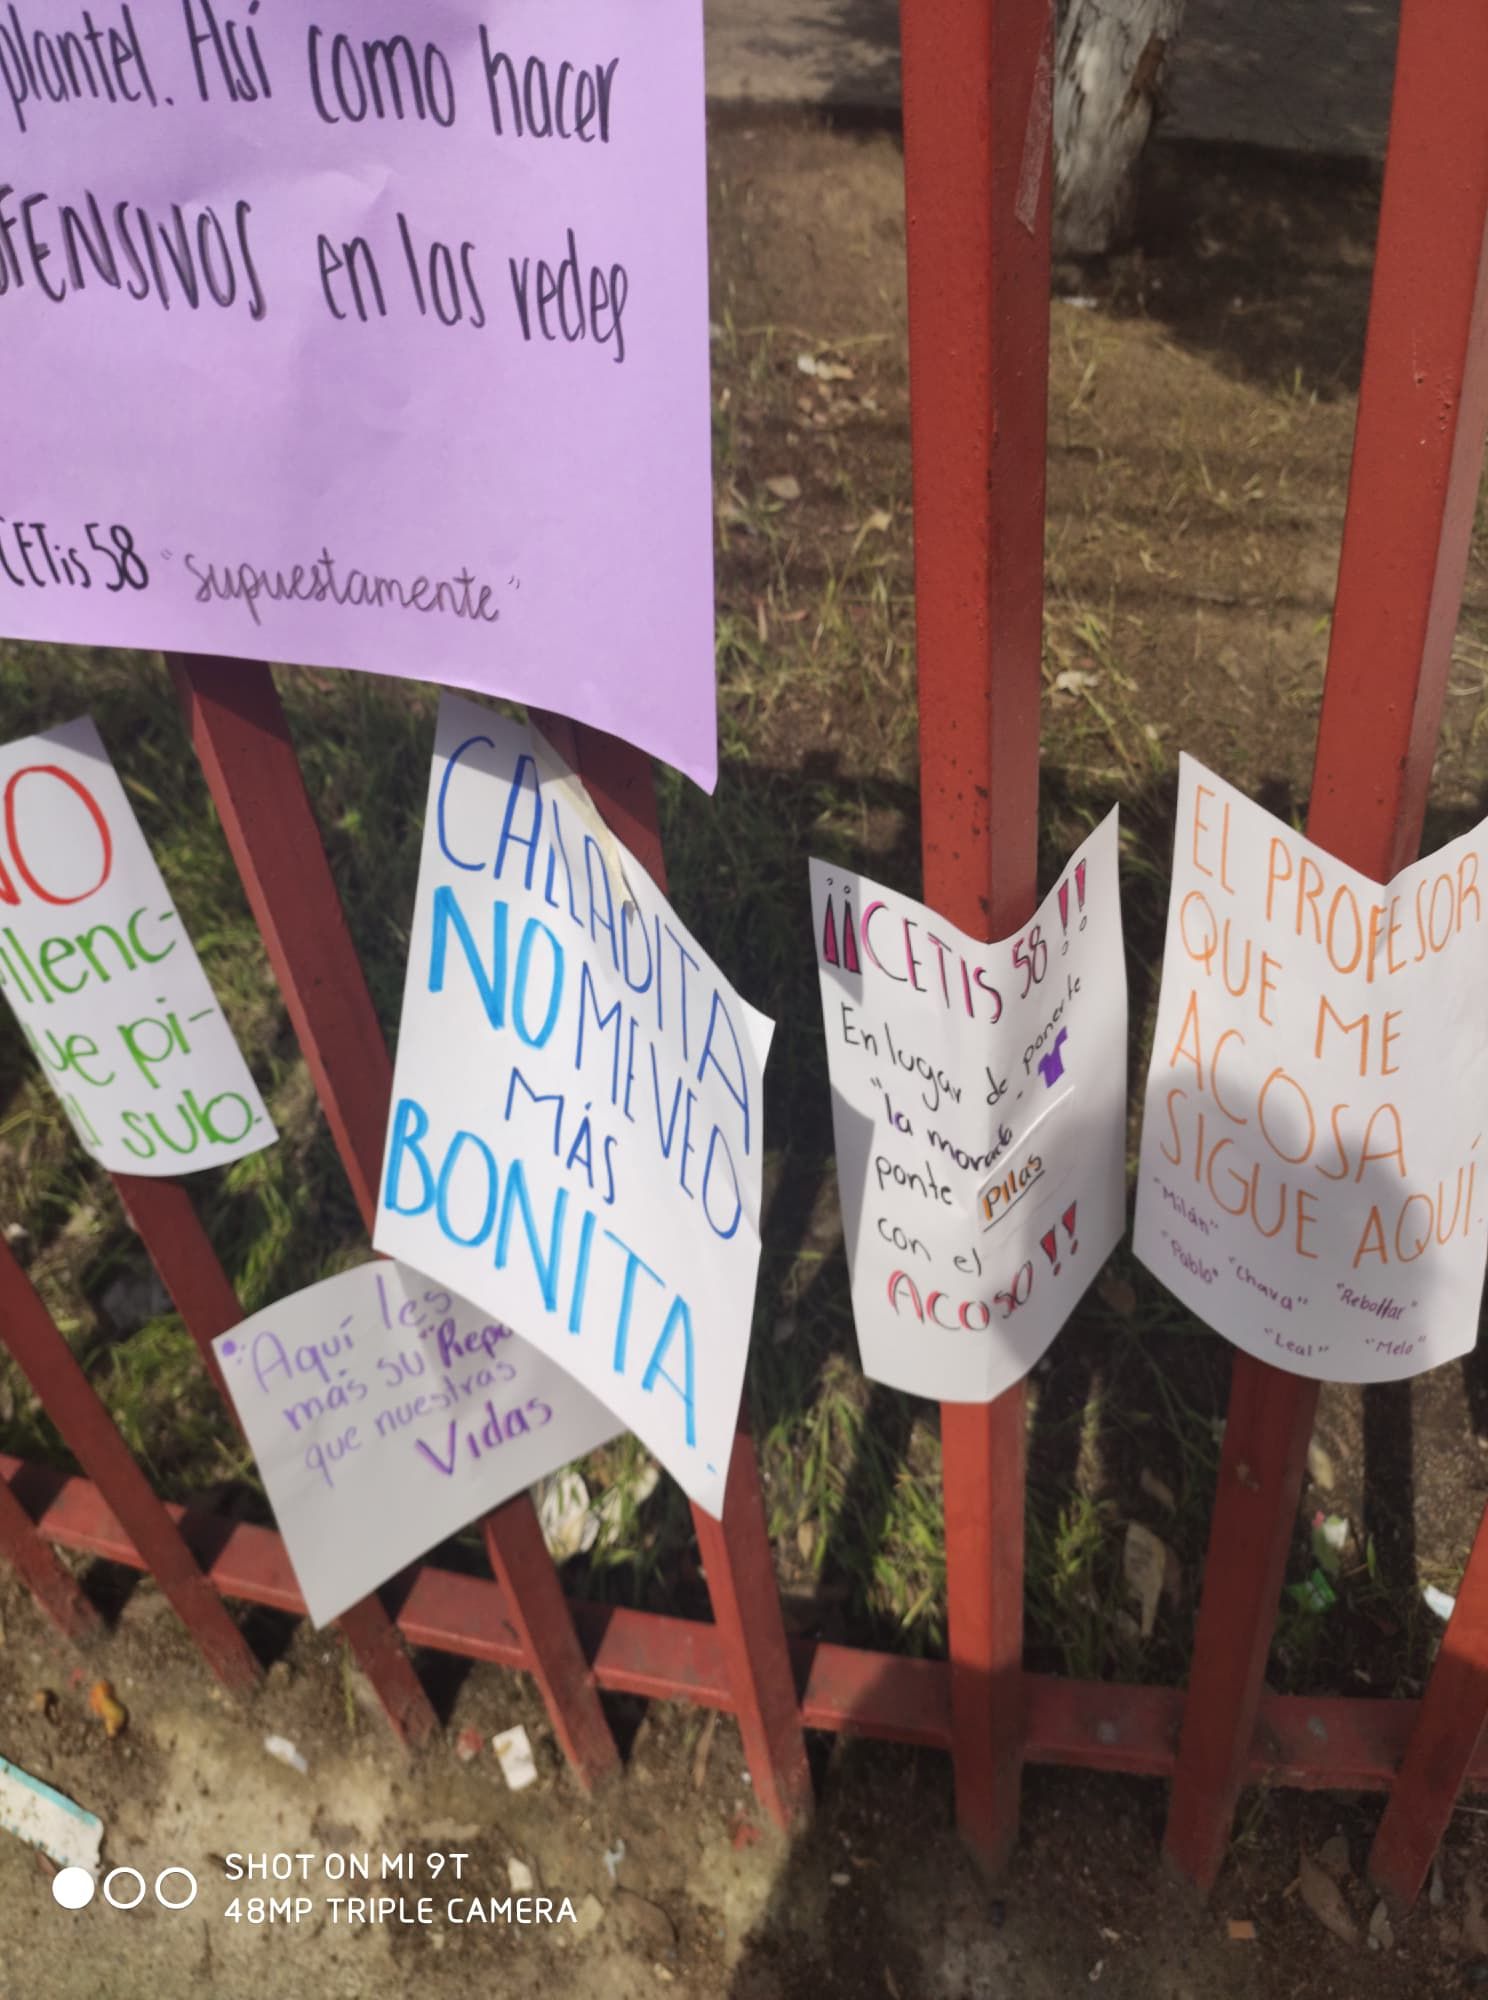 plantel. Así como hacer
OFENSIVOS en las redes
CETis 58 "supuestamente"
NO
ue pi-
sub.
CALLADITA
NO ME VEO
MÁS
BONITA.
"Aquí les
más su "Repu
que nuestras
Vidas
¡¡CETIS 58!!
En lugar de ponerte
"la morada
ponte Pilas
con el
ACOSO!!
EL PROFESOR
QUE ME
ACOSA
SIGUE AQUÍ.
"Milán"
"Pablo" "Chava" "Rebollar"
"Leal" "Melo"
SHOT ON MI 9T
48MP TRIPLE CAMERA